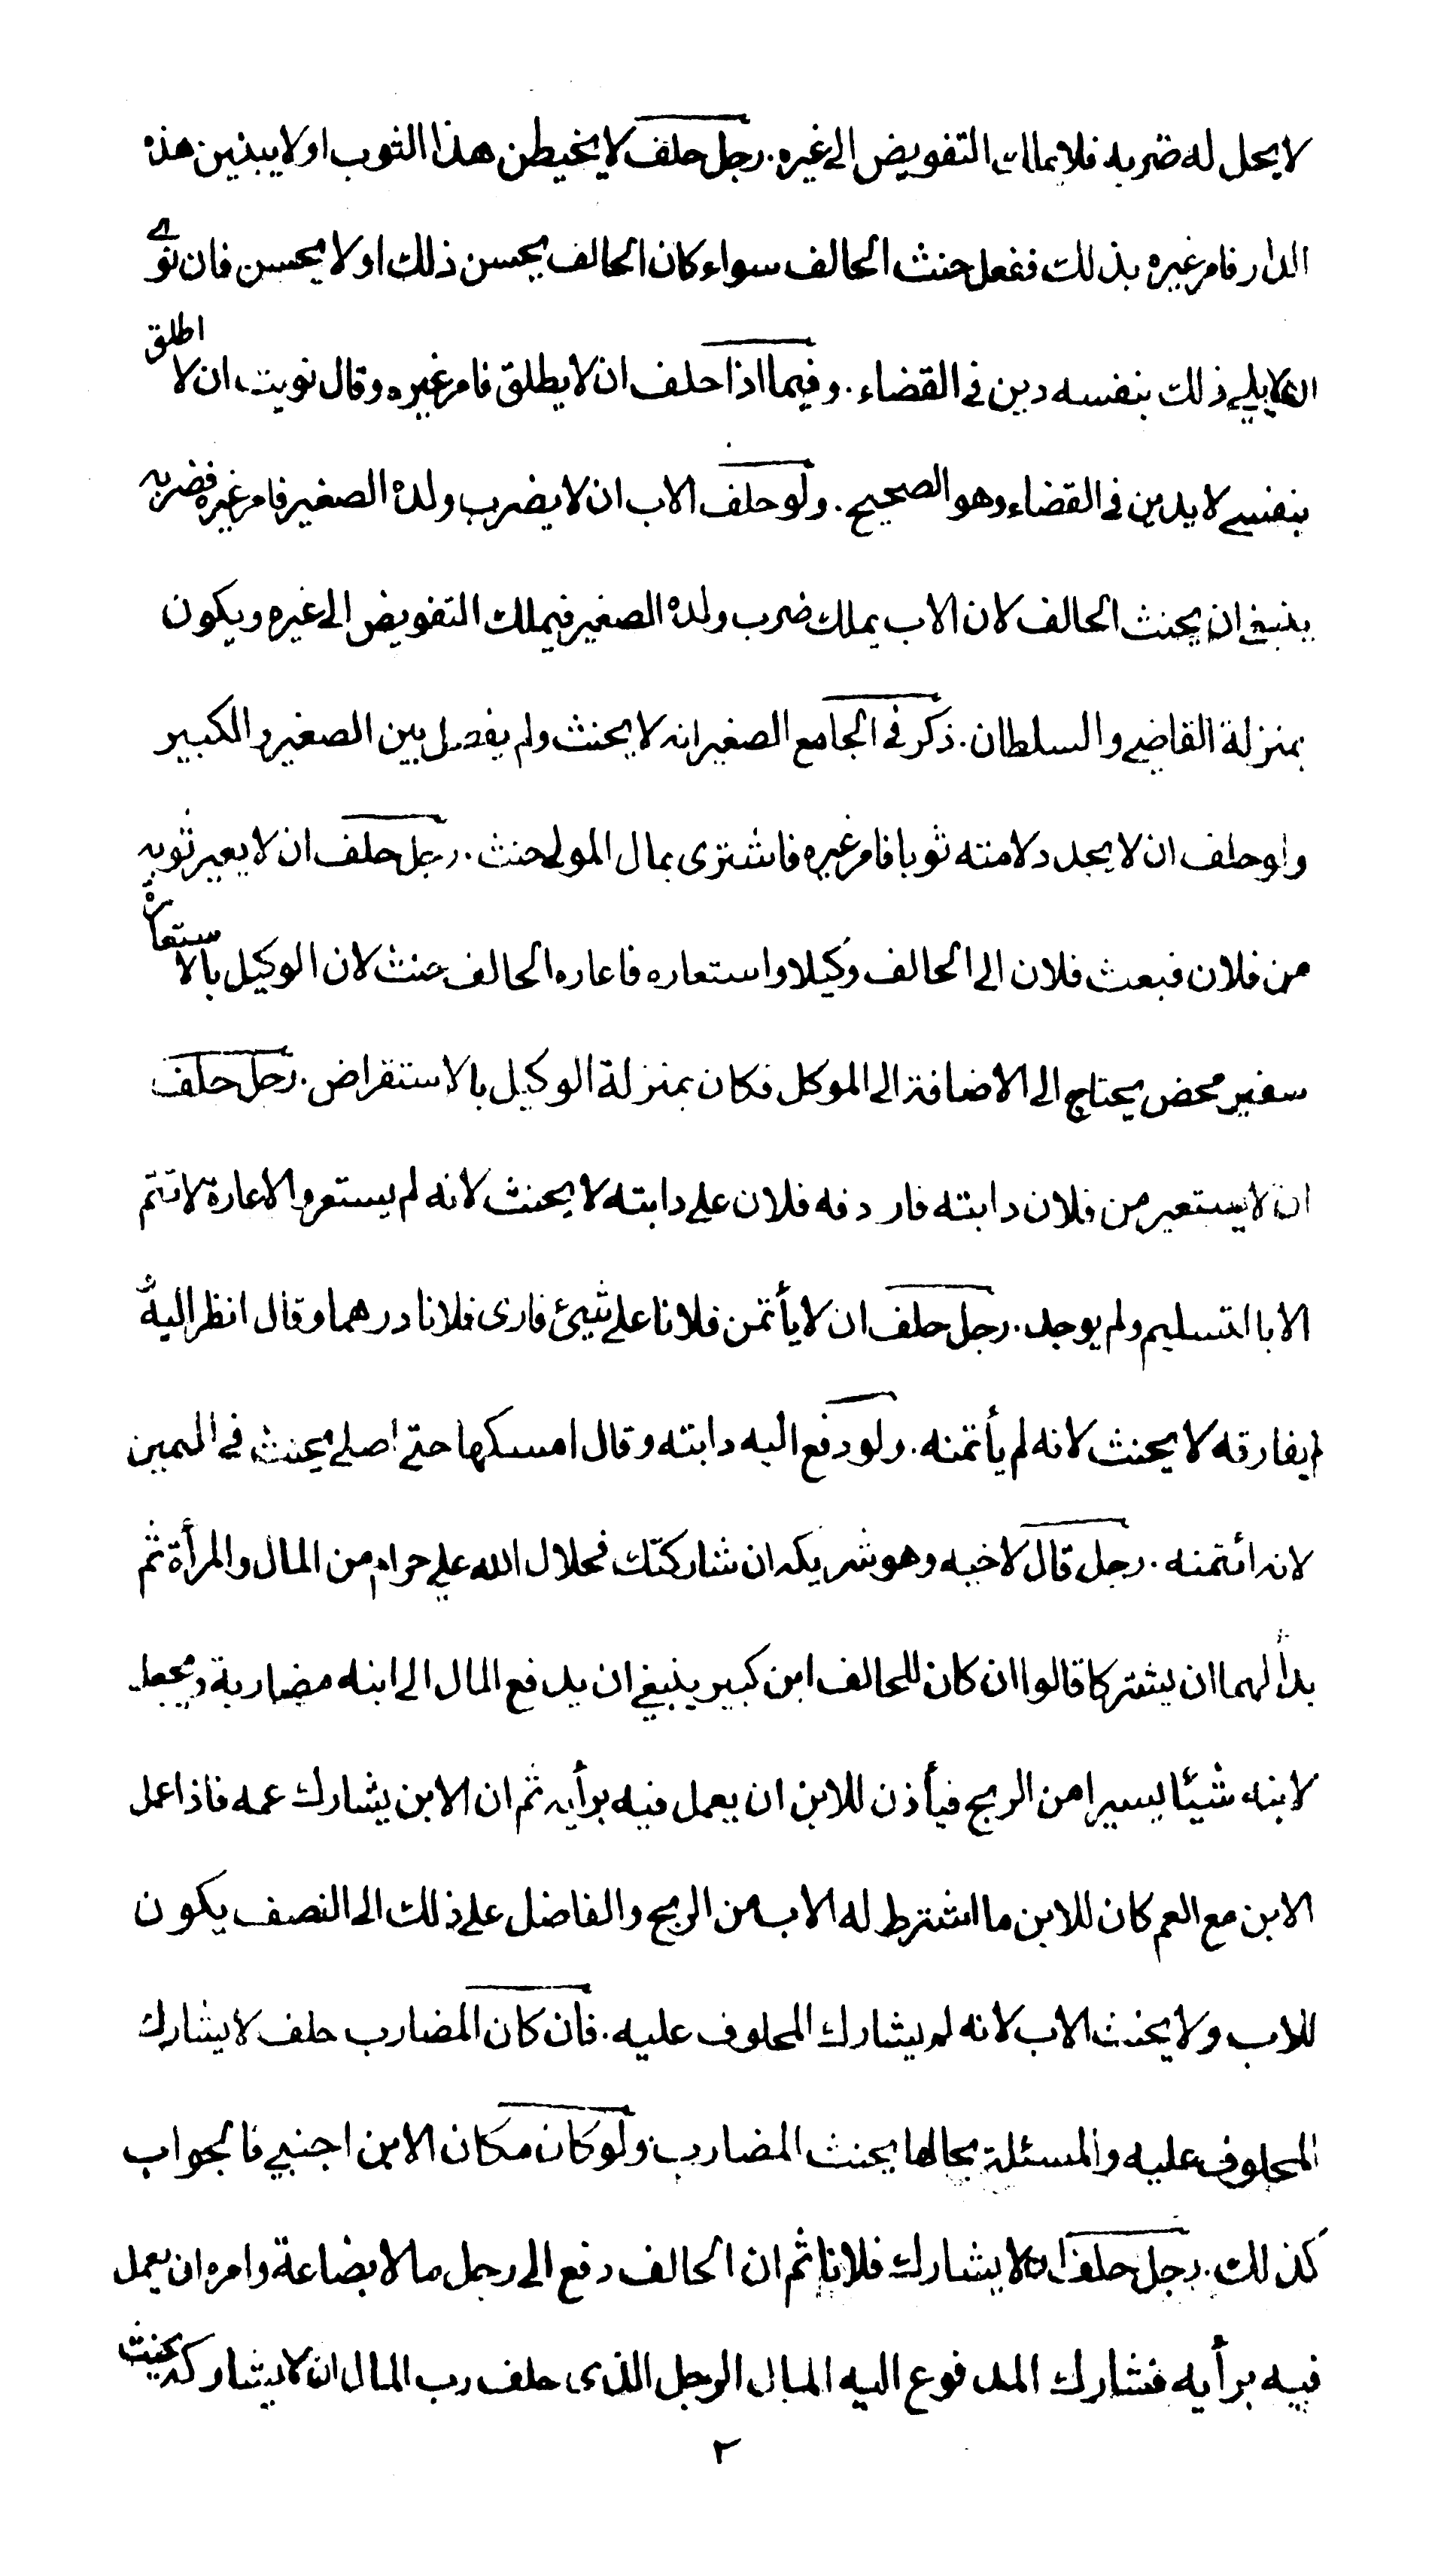 لا يحل له ضربه فلا يملك التفويض الى غيره . رجل حلف لا يخيطن هذا الثوب او لا يبنين هذه
الدار فامر غيره بذلك ففعل حنث الحالف سواء كان الحالف يحسن ذلك او لا يحسن فان نوى
ان لا يلي ذلك بنفسه دين في القضاء . وفيما اذا حلف ان لا يطلق فامر غيره وقال نويت ان لا اطلق
بنفسي لا يدين في القضاء وهو الصحيح . ولو حلف الاب ان لا يضرب ولده الصغير فامر غيره فضربه
ينبغي ان يحنث الحالف لان الاب يملك ضرب ولده الصغير فيملك التفويض الى غيره ويكون
بمنزلة القاضي والسلطان . ذكر في الجامع الصغير انه لا يحنث ولم يفصل بين الصغير والكبير
ولو حلف ان لا يجدد لامته ثوبا فامر غيره فاشترى بمال المولى حنث . رجل حلف ان لا يعير ثوبه
من فلان فبعث فلان الى الحالف وكيلا واستعاره فاعاره الحالف حنث لان الوكيل بالاستعارة
سفير محض يحتاج الى الاضافة الى الموكل فكان بمنزلة الوكيل بالاستقراض . رجل حلف
ان لا يستعير من فلان دابته فاردفه فلان على دابته لا يحنث لانه لم يستعر والاعارة لا تتم
الا بالتسليم ولم يوجد . رجل حلف ان لا يأتمن فلانا على شيئ فارى فلانا درهما وقال انظر اليه
لم يفارقه لا يحنث لانه لم يأتمنه . ولو دفع اليه دابته وقال امسكها حتى اصلي يحنث في اليمين
لانه ائتمنه . رجل قال لاخيه وهو شريكه ان شاركتك فحلال الله علي حرام من المال والمرأة ثم
بدأ لهما ان يشتركا قالوا ان كان للحالف ابن كبير ينبغي ان يدفع المال الى ابنه مضاربة ويجعل
لابنه شيئا يسيرا من الربح فيأذن للابن ان يعمل فيه برأيه ثم ان الابن يشارك عمه فاذا عمل
الابن مع العم كان للابن ما اشترط له الاب من الربح والفاضل على ذلك الى النصف يكون
للاب ولا يحنث الاب لانه لم يشارك المحلوف عليه . فان كان المضارب حلف لا يشارك
المحلوف عليه والمسئلة بحالها يحنث المضارب ولو كان مكان الابن اجنبي فالجواب
كذلك . رجل حلف ان لا يشارك فلانا ثم ان الحالف دفع الى رجل مالا بضاعة وامره ان يعمل
فيه برأيه فشارك المدفوع اليه المال الرجل الذى حلف رب المال ان لا يشاركه يحنث
٢